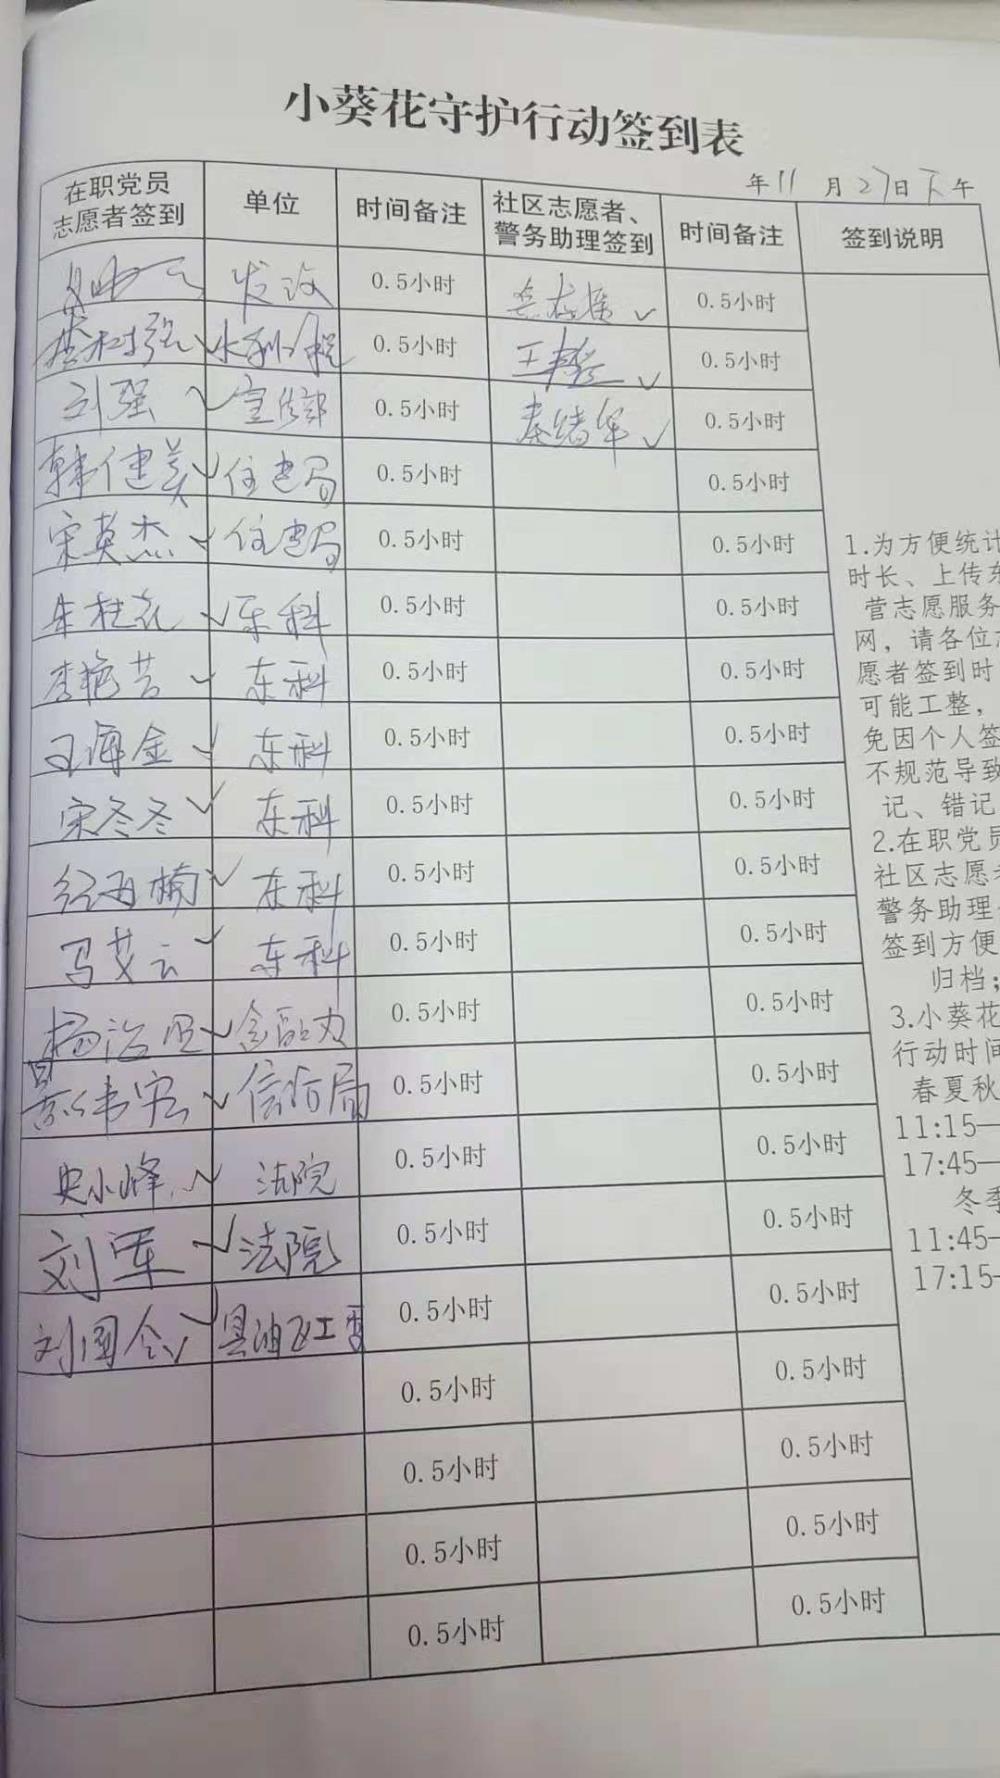 小葵花守护行动签到表
年11月27日下午
在职党员志愿者签到 单位 时间备注 社区志愿者、警务助理签到 时间备注 签到说明
发改 0.5小时 0.5小时
水利 0.5小时 王 0.5小时
刘强 宣传部 0.5小时 秦绪军 0.5小时
韩健美 住建局 0.5小时 0.5小时
宋英杰 住建局 0.5小时 0.5小时
朱桂花 东科 0.5小时 0.5小时
李艳芳 东科 0.5小时 0.5小时
王海金 东科 0.5小时 0.5小时
宋冬冬 东科 0.5小时 0.5小时
东科 0.5小时 0.5小时
马艾云 东科 0.5小时 0.5小时
杨治 金融办 0.5小时 0.5小时
景伟宏 信访局 0.5小时 0.5小时
史小峰 法院 0.5小时 0.5小时
刘军 法院 0.5小时 0.5小时
刘国令 县油区工委 0.5小时 0.5小时
0.5小时 0.5小时
0.5小时 0.5小时
0.5小时 0.5小时
0.5小时 0.5小时
1.为方便统计
时长、上传东
营志愿服务
网，请各位志
愿者签到时
可能工整，
免因个人签
不规范导致
记、错记
2.在职党员
社区志愿者
警务助理
签到方便
归档；
3.小葵花
行动时间
春夏秋
11:15—
17:45—
冬季
11:45—
17:15—